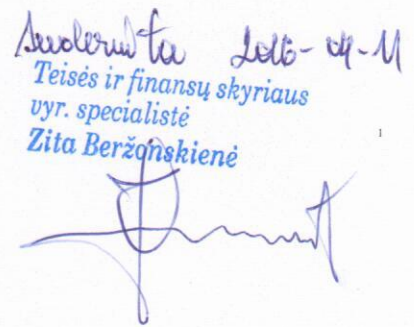 Suderinta 2016-04-11
Teisės ir finansų skyriaus
vyr. specialistė
Zita Beržanskienė
1